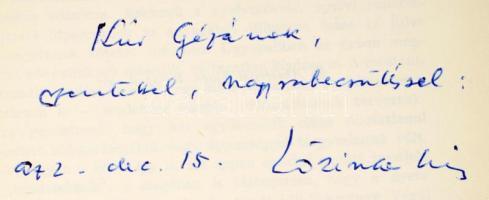 Kúr Gézának,
szeretettel, nagyrabecsüléssel:
972. dec. 15. Lőrincze